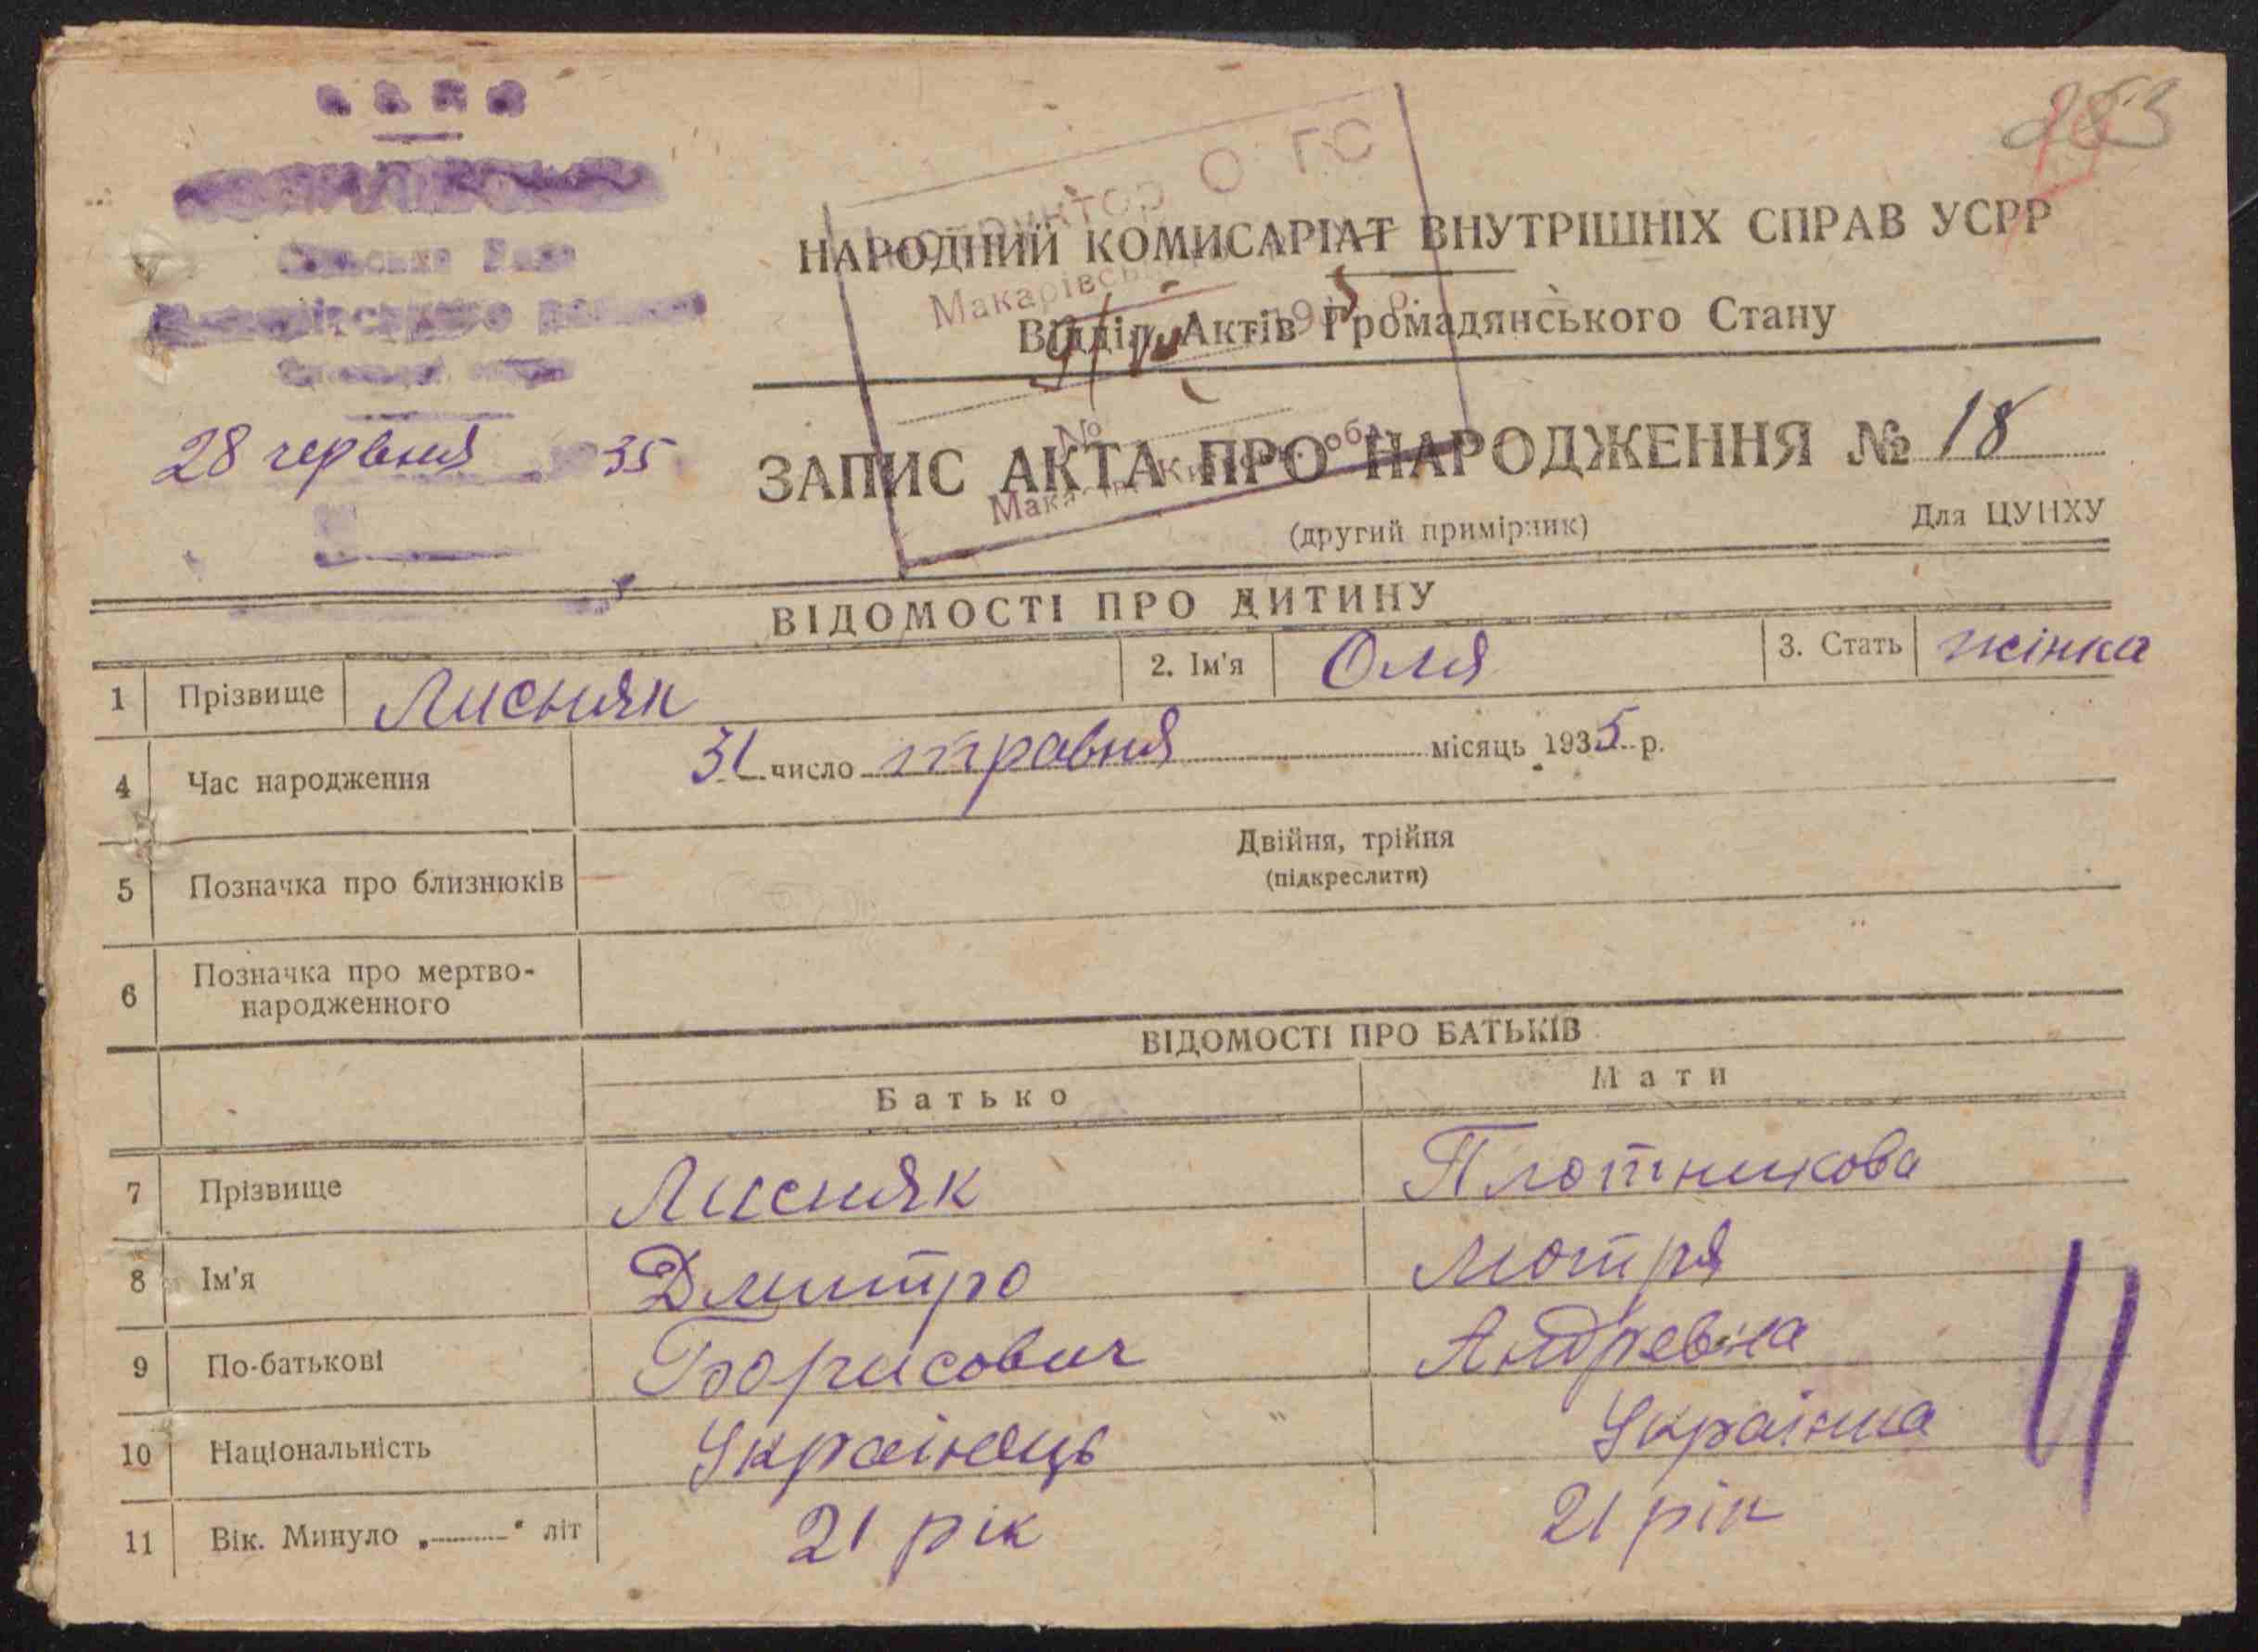 283
Інспектор О ГС
НАРОДНИЙ КОМИСАРІАТ ВНУТРІШНІХ СПРАВ УСРР
Сільська Рада
Макарівськ
Відділ Актів Громадянського Стану
28 червня 35
№
ЗАПИС АКТА ПРО НАРОДЖЕННЯ № 18
(другий примірник)
Для ЦУНХУ
ВІДОМОСТІ ПРО ДИТИНУ
1 Прізвище Лисняк 2. Ім'я Оля 3. Стать жінка
4 Час народження 31 число травня місяць 1935 р.
5 Позначка про близнюків Двійня, трійня
(підкреслити)
6 Позначка про мертво-
народженного
ВІДОМОСТІ ПРО БАТЬКІВ
Батько Мати
7 Прізвище Лисняк Плотникова
8 Ім'я Дмитро Мотря
9 По-батькові Борисович Андревна
10 Національність Українець Українка
11 Вік. Минуло „ " літ 21 рік 21 рік